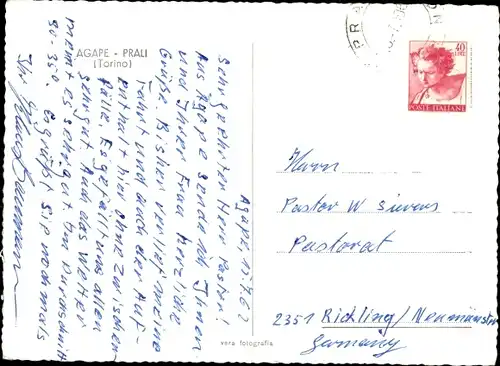 AGAPE - PRALI
(Torino)
Agape 15.7.62
Sehrgeehrter Herr Pastor!
Aus Agape sende ich Ihnen
und Ihrer Frau herzliche
Grüße. Bisher verlief meine
Fahrt und auch der Auf-
enthalt hier ohne Zwischen-
fälle. Es gefällt uns allen
sehr gut. Auch das Wetter
meint es sehr gut. Im Durchschnitt
30-35°. Es grüßt Sie nochmals
Ihr
40
LIRE
POSTE ITALIANE
Herrn
Pastor W Sievers
Pastorat
2351 Rickling/Neumünster
Germany
vera fotografia